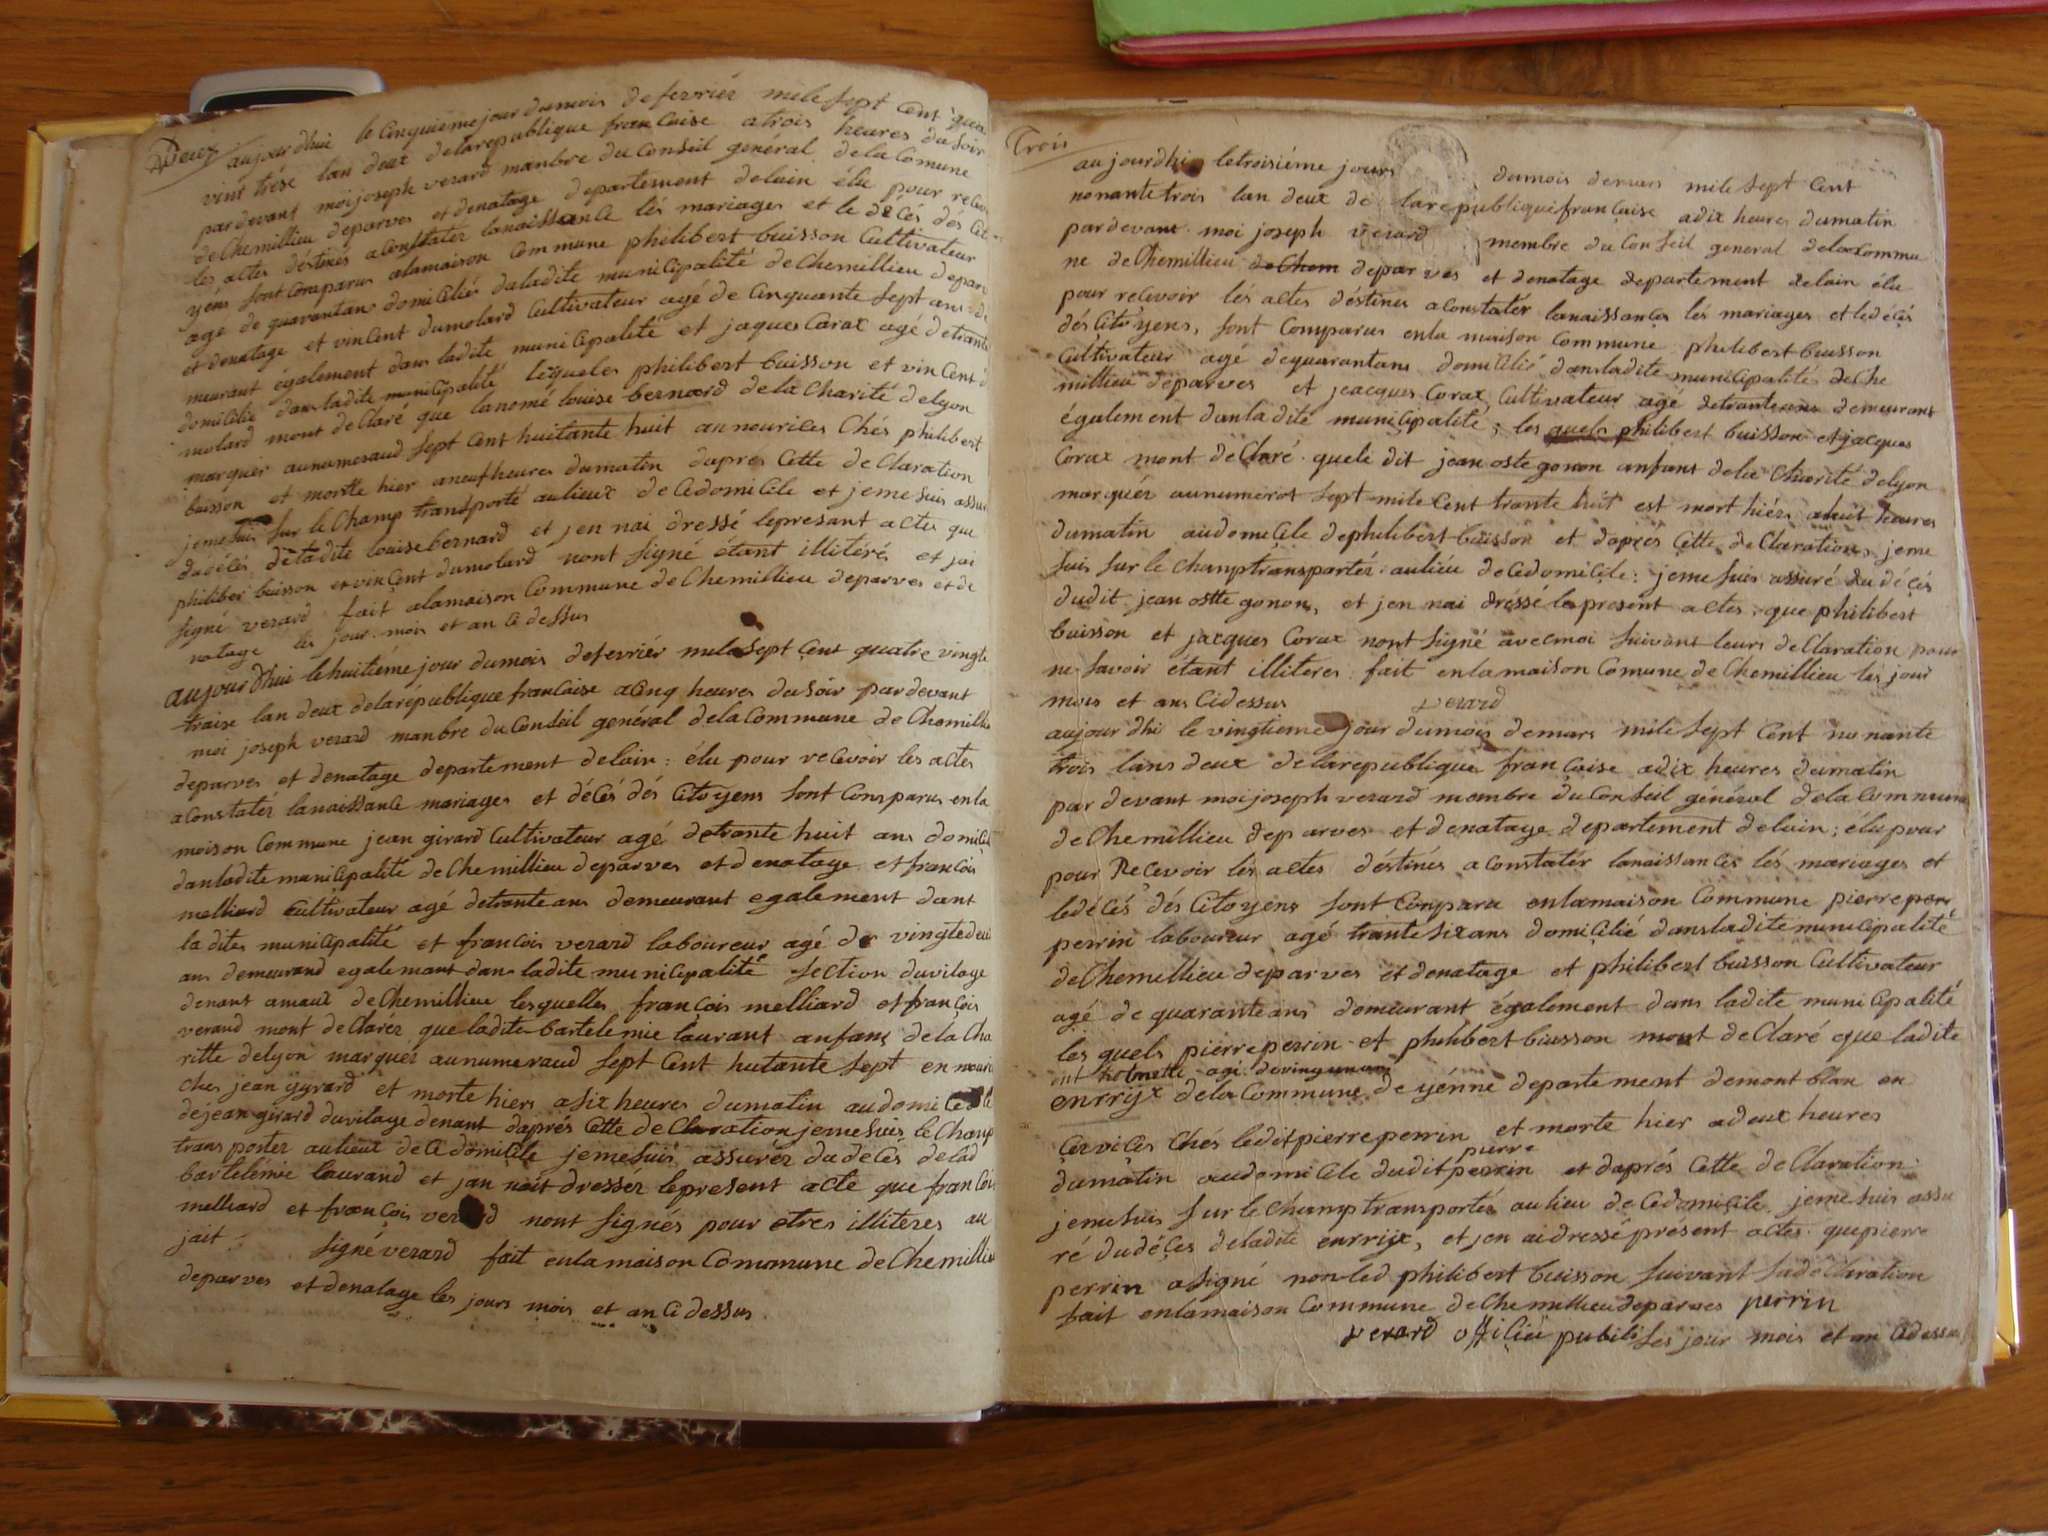 Deux
aujourdhui le cinquieme jour dumois defevriér mile sept cent quatre
vint trése lan deux delarepublique francaise atrois heures du soir
pardevant moi joseph verard manbre du Conseil général delacomune
deChemillieu deparves et denatage departement delain élu pour recevoir
les actes déstinés aconstater lanaissance lés mariages et le décés dés Cito
yéns sont comparus alamaison commune philibert buisson Cultivateur
age de quarantans domicilié daladite municipalité deChemillieu depar
et denatage et vincent dumolard Cultivateur agé de cinquante sept ans de
meurant également dans ladite municipalité et jaques Corax agé detrante
domicilie dans ladite municipalité lequeles philibert buisson et vincent du
molard mont declaré que lanomé louise bernard dela Charité delyon
marquér aunumeraud sept cent huitante huit annourices Chés philibert
buison et mortte hier aneufheures dumatin dapres cette declaration
jemesuis sur leChamp transporté aulieux de cedomicile et jeme suis assu
dudécés deladite louisebernard et jen nai dressé lepresant actes que
philiber buisson et vincent dumolard nont signé étant illitéré et jai
signé verard fait alamaison Commune deChemillieu deparves et de
natage les jour mois et an ci dessus
aujourdhui lehuitiéme jour dumois defevriér mile sept cent quatre vingts
traise lan deux delarépublique francaise acinq heures dusoir pardevant
moi joseph verard manbre du Conseil genéral dela commune de Chemillie
deparves et denatage departement delain : élu pour recevoir les actes
aconstatér lanaissance mariages et décés dés citoyens sont comparus enla
maison commune jean girard cultivateur agé detrante huit ans domicilié
danladite municipalité deChemillieu deparves et denatage et francois
melliard cultivateur agé detrante ans demeurant egalement dant
la dites municipalité et francois verard laboureur agé de vingtedeux
ans demeurand egalemant dan ladite municipalité section duvilage
denant amaux deChemillieu lesquelles francois melliard et francois
veraud mont deClaréz que ladite bartelemie laurant anfans de la Cha
ritte delyon marquéz aunumeraud sept cent hutante sept en nouri
Ches jean gyrard et morte hiers asix heures dumatin audomicile
dejean girard duvilage denant daprés cette deClaration jemesuis leChamp
transportez aulieux dece domicile jemesuis assuréz dudecés delad
bartelemie laurand et jan nait dressér lepresent acte que francoi
melliard et francois verard nont signés pour etres illiteres au
jait signé verard fait enlamaison Commune deChemillieu
deparves et denatage les jours mois et an ci dessus
Trois
aujourdhi letroisiéme jours dumois demars mile sept cent
nonante trois lan deux de larepubliquefrancaise adix heures dumatin
pardevant moi joseph verard membre du Conseil general delacommu
ne deChemillieu deChem deparves et denatage departement delain élu
pour recevoir lés actes déstines aconstatér lanaissances lés mariages et ledécés
dés citoyens, sont comparus enla maison commune philibert buisson
Cultivateur agé dequarantans domicilié dansladite municipalité deChe
millieu deparves et jeacques Corax Cultivateur agé detrante ans demeurant
également danladite municipalité ; les quels philibert buisson et jacques
Corax mont deClaré queli dit jean oste gonon anfant dela Charité delyon
marquér aunumerot sept mile cent trante huit est mort hiér ahuit heures
dumatin audomicile dephilibert buisson et daprés cette deClaration jeme
suis sur le champ transportér aulieu de cedomicile : jeme suis assuré du décés
dudit jean ostte gonon, et jen nai dréssé le present actes que philibert
buisson et jacques Corax nont signé avecmoi suivant leurs deClaration pour
ne savoir etant illiteres fait enlamaison Comune deChemillieu les jour
mois et ans cidessus verard
aujourdhi le vingtieme jour dumois demars mile sept cent nonante
trois lans deux delarepublique francaise adix heures dumatin
par devant moijoseph verard membre duConseil général delacommune
deChemillieu deparves et denatage departement delain ; élu pour
pour Recevoir lés actes déstinés aconstatér lanaissances lés mariages et
ledécés dés citoyens sont comparu enlamaison Commune pierre perr
perrin laboureur agé trante sixans domicilié dansladite municipalité
deChemillieu deparves et denatage et philibert buisson Cultivateur
agé de quarante ans demeurant également dans ladite municipalité
les quels piérre perrin et philibert buisson mont deClaré que ladite
enrrijx dela Commune de yénne departement demont blan en
cervices Chés ledit pierre perrin et morte hier adeux heures
pierre
dumatin audomicile dudit perrin et daprés cette deClaration
jemesuis sur le Champ transportés aulieu de cedomicile jeme suis assu
ré dudéces deladite enrrijx, et jen aidressé présent actes que pierre
perrin asigné non led philibert buisson suivant sadéclaration
fait enlamaison Commune deChemillieu deparves perrin
verard officiê publi les jour mois et an cidessus